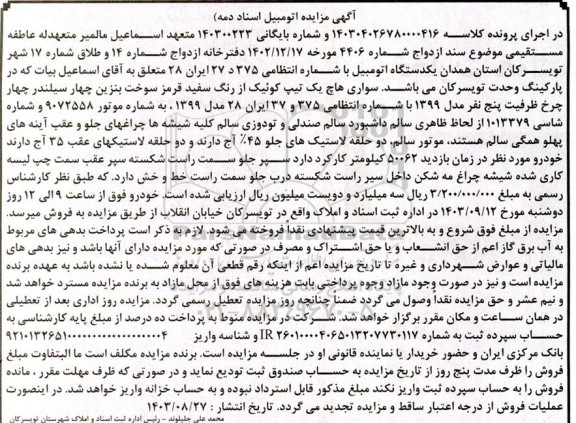 آگهی مزایده اتومبیل اسناد ذمه)
در اجرای پرونده کلاسه ۱۴۰۳۰۴۰۲۶۷۸۰۰۰۰۴۱۶ و شماره بایگانی ۱۴۰۳۰۰۲۲۳ متعهد اسماعیل مالمیر متعهدله عاطفه
مستقیمی موضوع سند ازدواج شماره ۴۴۰۶ مورخه ۱۴۰۲/۱۲/۱۷ دفترخانه ازدواج شماره ۱۴ و طلاق شماره ۱۷ شهر
تویسرکان استان همدان یکدستگاه اتومبیل با شماره انتظامی ۳۷۵ د ۲۷ ایران ۲۸ متعلق به آقای اسماعیل بیات که در
پارکینگ وحدت تویسرکان می باشد. سواری هاچ بک تیپ کوئیک از رنگ سفید قرمز سوخت بنزین چهار سیلندر چهار
چرخ ظرفیت پنج نفر مدل ۱۳۹۹ با شماره انتظامی ۳۷۵ و ۳۷ ایران ۲۸ مدل ۱۳۹۹، به شماره موتور ۹۰۷۲۵۵۸ و شماره
شاسی ۱۰۱۳۳۷۹ از لحاظ ظاهری سالم داشبورد سالم صندلی و تودوزی سالم کلیه شیشه ها چراغهای جلو و عقب آینه های
پهلو همگی سالم هستند، موتور سالم، دو حلقه لاستیک های جلو ۴۵٪ آج دارند و دو حلقه لاستیکهای عقب ۳۵ آج دارند
خودرو مورد نظر در زمان بازدید ۵۰۰۶۲ کیلومتر کارکرد دارد سپر جلو سمت راست شکسته سپر عقب سمت چپ لیسه
کاری شده شیشه چراغ مه شکن داخل سپر راست شکسته درب جلو سمت راست خط و خش دارد. که طبق نظر کارشناس
رسمی به مبلغ ۳/۲۰۰/۰۰۰/۰۰۰ ریال سه میلیارد و دویست میلیون ریال ارزیابی شده است. خودرو فوق از ساعت ۹ الی ۱۲ روز
دوشنبه مورخ ۱۴۰۳/۰۹/۱۲ در اداره ثبت اسناد و املاک واقع در تویسرکان خیابان انقلاب از طریق مزایده به فروش میرسد.
مزایده از مبلغ فوق شروع و به بالاترین قیمت پیشنهادی نقدا فروخته می شود. لازم به ذکر است پرداخت بدهی های مربوط
به آب برق گاز اعم از حق انشعاب و یا حق اشتراک و مصرف در صورتی که مورد مزایده دارای آنها باشد و نیز بدهی های
مالیاتی و عوارض شهرداری و غیره تا تاریخ مزایده اعم از اینکه رقم قطعی آن معلوم شده یا نشده باشد به عهده برنده
مزایده است و نیز در صورت وجود مازاد وجوه پرداختی بابت هزینه های فوق از محل مازاد به برنده مزایده مسترد خواهد شد
و نیم عشر و حق مزایده نقدا وصول می گردد ضمنا چنانچه روز مزایده تعطیل رسمی گردد. مزایده روز اداری بعد از تعطیلی
در همان ساعت و مکان مقرر برگزار خواهد شد. شرکت در مزایده منوط به پرداخت ده درصد از مبلغ پایه کارشناسی به
حساب سپرده ثبت به شماره IR ۲۶۰۱۰۰۰۰۴۰۶۵۰۱۳۲۰۷۷۳۰۱۱۷ و شناسه واریز
بانک مرکزی ایران و حضور خریدار یا نماینده قانونی او در جلسه مزایده است. برنده مزایده مکلف است ما البتفاوت مبلغ
فروش را ظرف مدت پنج روز از تاریخ مزایده به حساب صندوق ثبت تودیع نماید و در صورتی که ظرف مهلت مقرر، مانده
فروش را به حساب سپرده ثبت واریز نکند مبلغ مذکور قابل استرداد نبوده و به حساب خزانه واریز خواهد شد. در اینصورت
عملیات فروش از درجه اعتبار ساقط و مزایده تجدید می گردد. تاریخ انتشار : ۱۴۰۳/۰۸/۲۷
محمد علی جلیلوند - رئیس اداره ثبت اسناد و املاک شهرستان تویسرکان